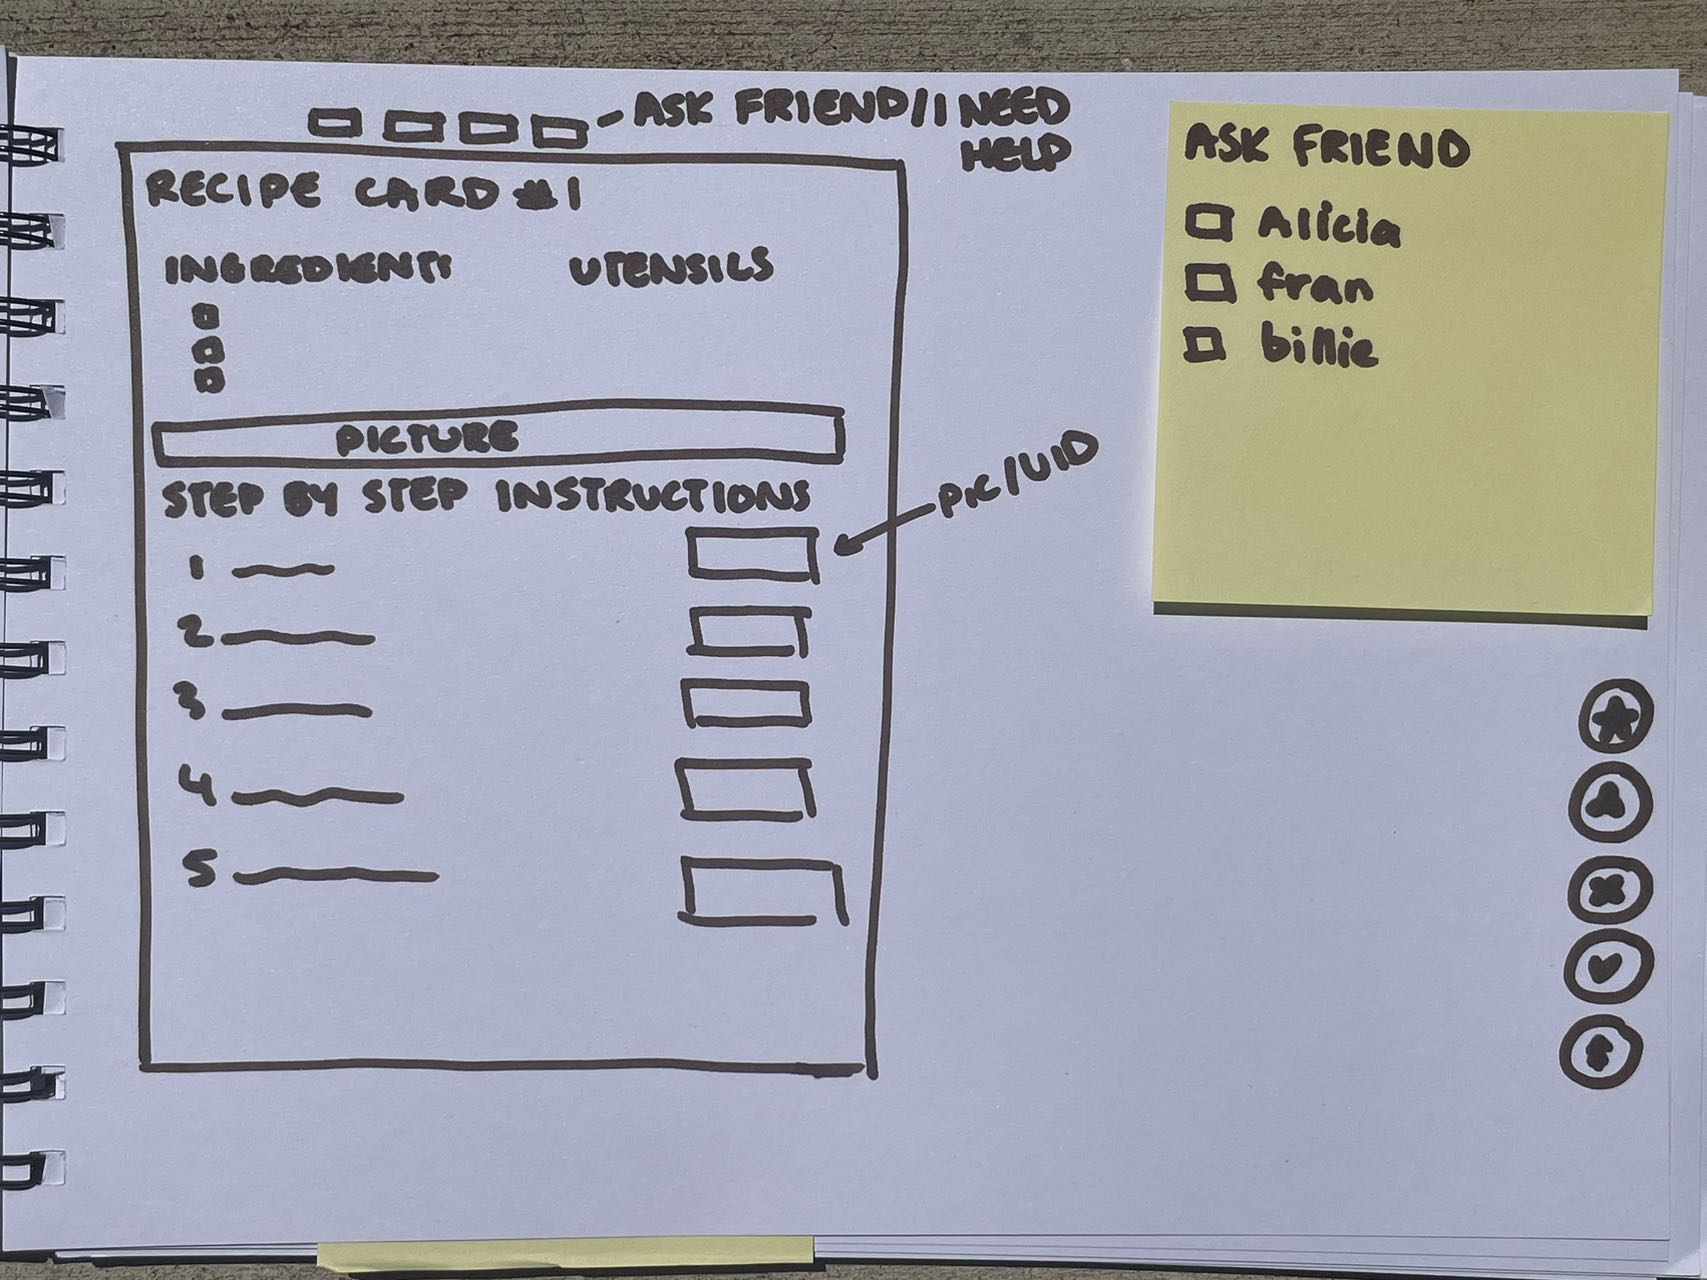 ASK FRIEND/I NEED
HELP
RECIPE CARD #1
INGREDIENTS
UTENSILS
PICTURE
STEP BY STEP INSTRUCTIONS
PIC/VID
1
2
3
4
5
ASK FRIEND
Alicia
fran
billie